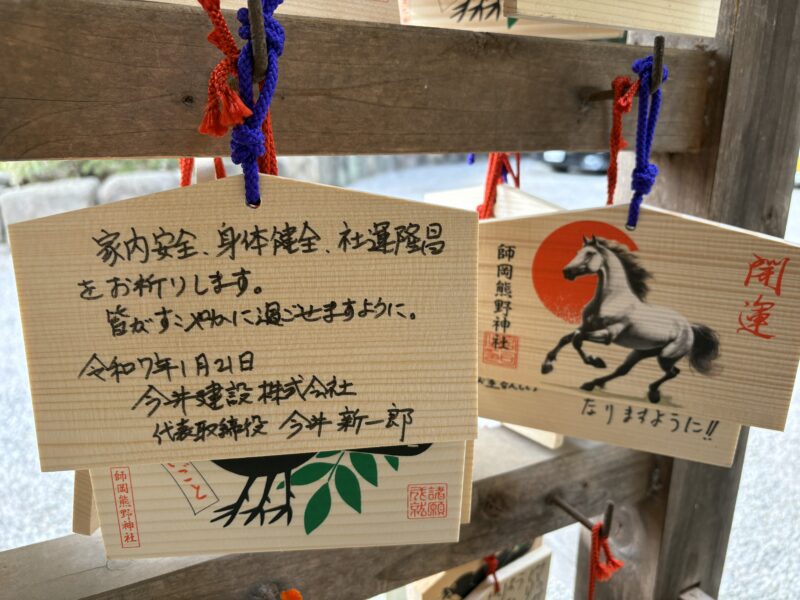 家内安全、身体健全、社運隆昌
をお祈りします。
皆がすこやかに過ごせますように。
令和7年1月21日
今井建設株式会社
代表取締役 今井新一郎
師岡熊野神社
開運
なりますように!!
ごと
師岡熊野神社
諸願
成就